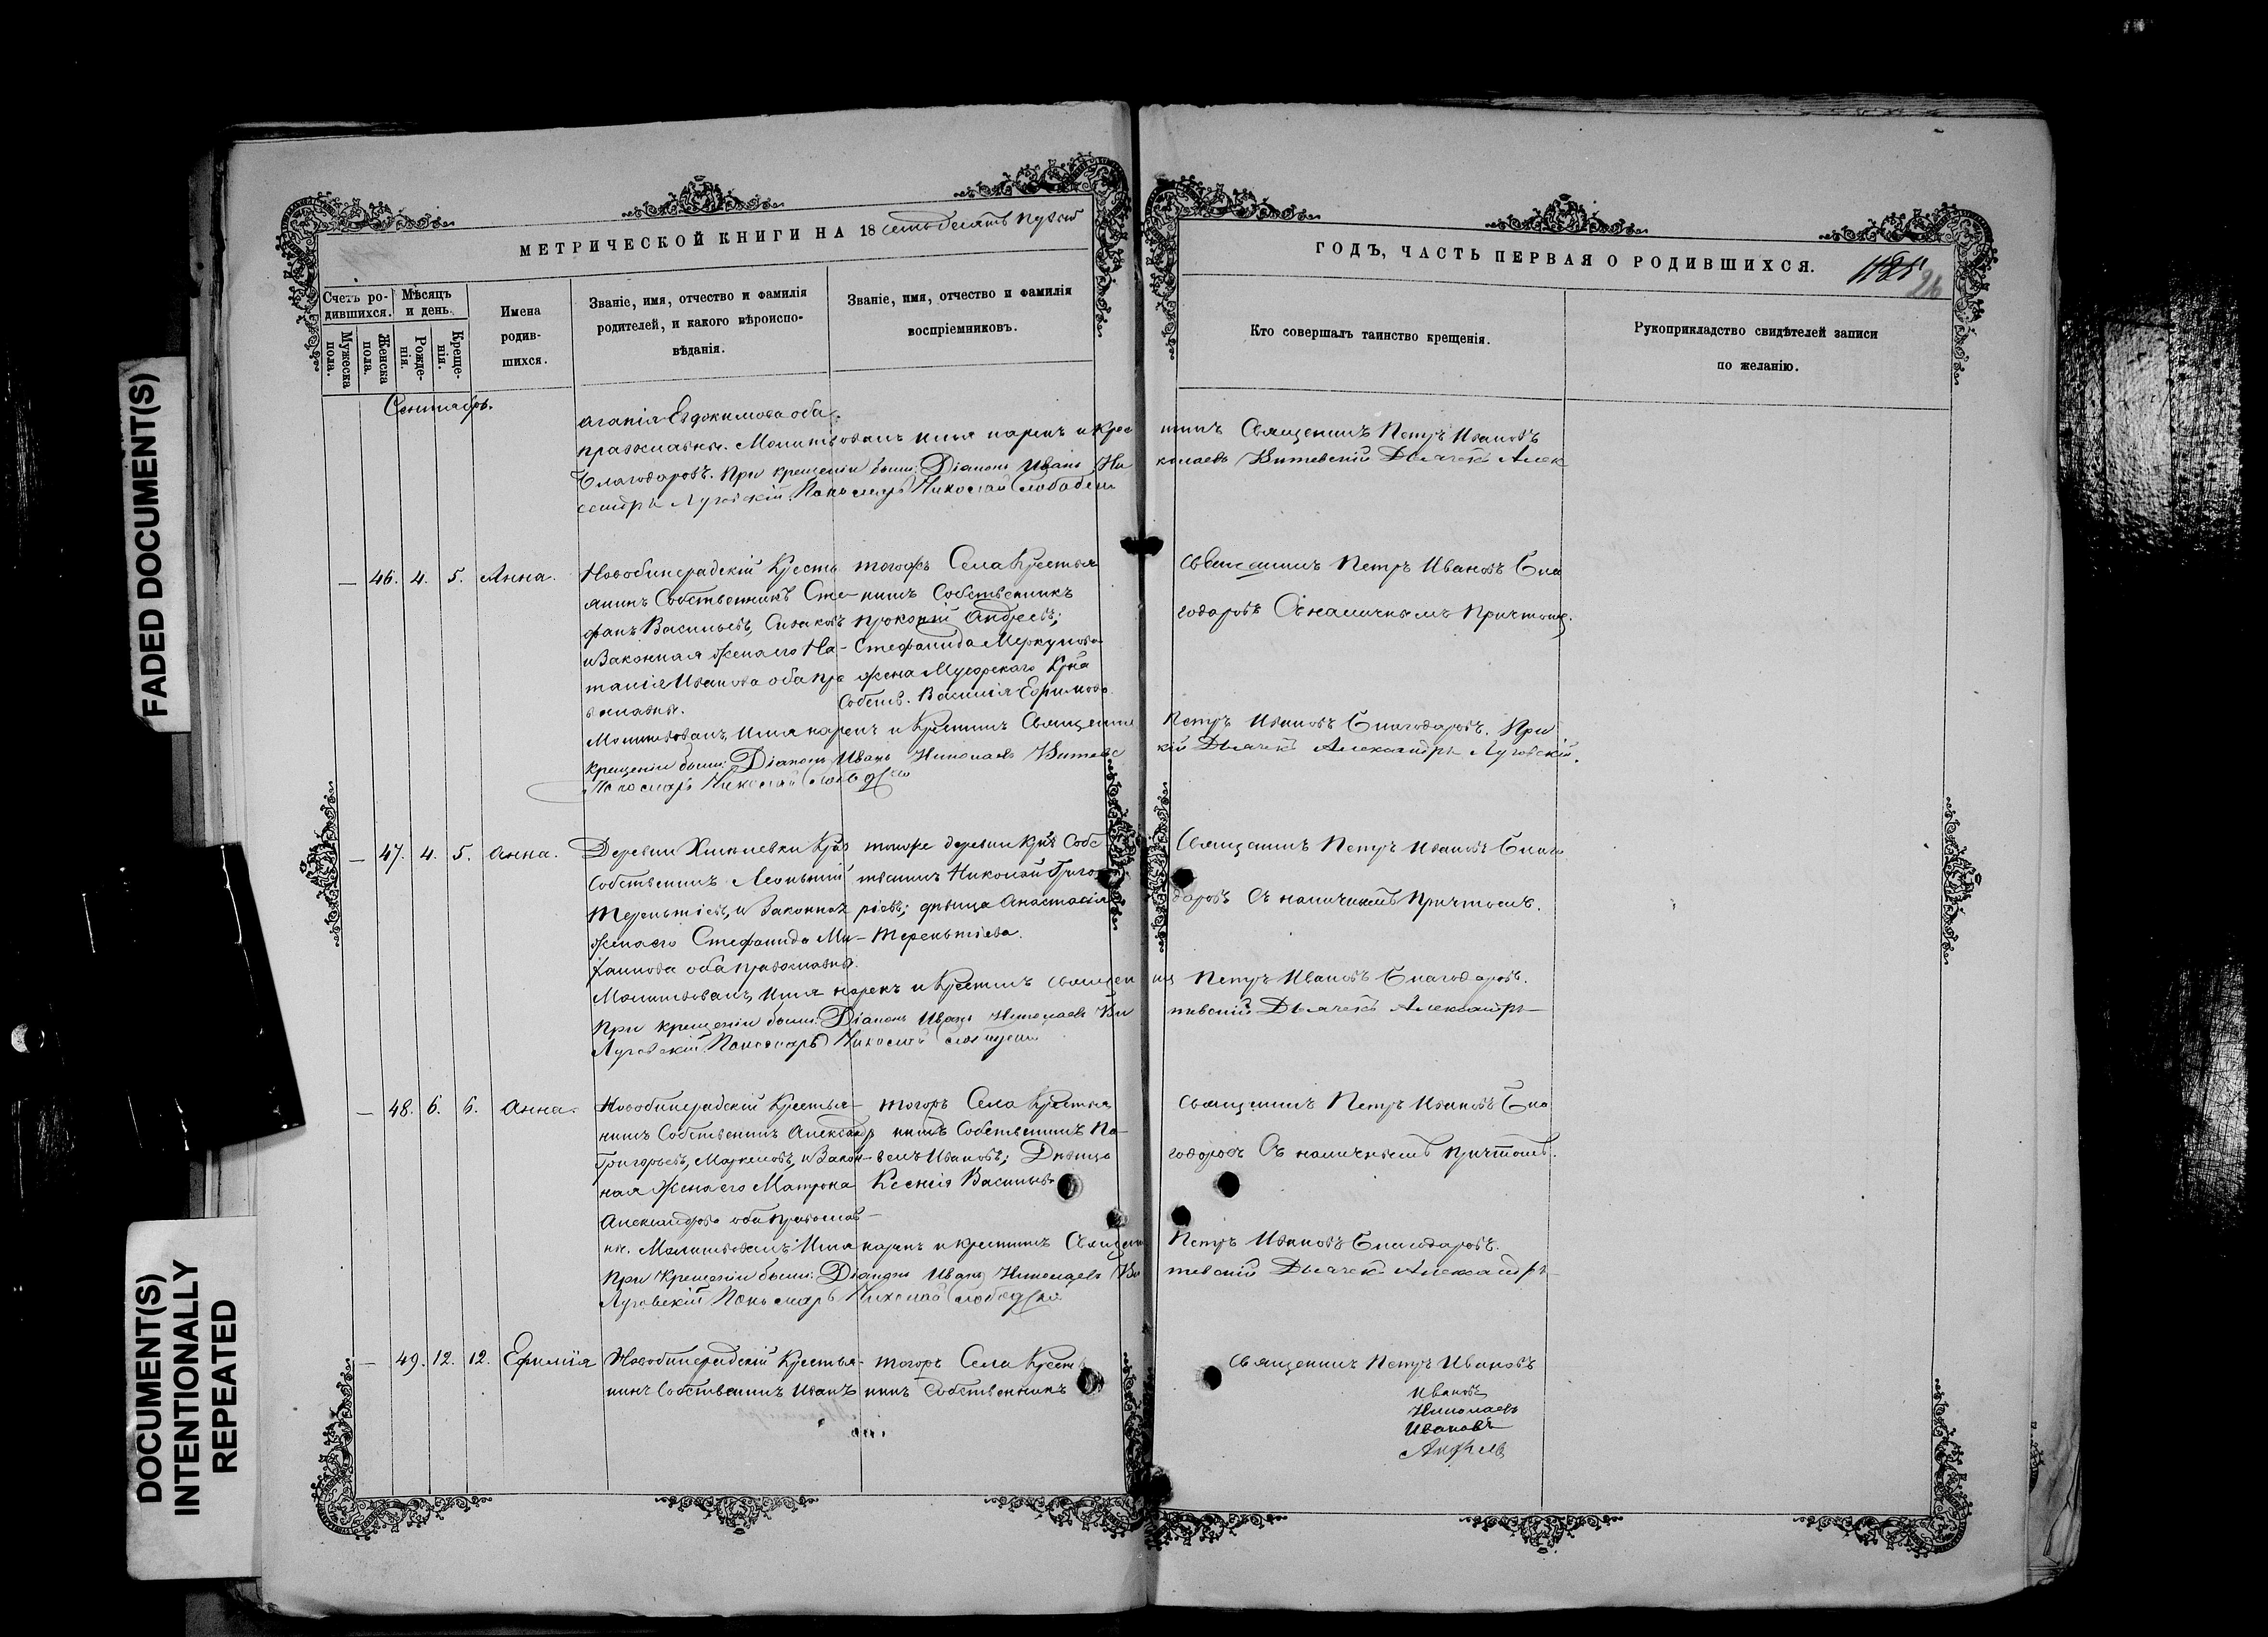 FADED DOCUMENT(S)
DOCUMENT(S)
INTENTIONALLY
REPEATED
МЕТРИЧЕСКОЙ КНИГИ НА 18
Счетъ ро-
дившихся.
Мужеска
пола.
Женска
пола.
Мѣсяцъ
и день.
Рожде-
нія.
Креще-
нія.
Имена
родив-
шихся.
Званіе, имя, отчество и фамилія
родителей, и какого вѣроиспо-
вѣданія.
Званіе, имя, отчество и фамилія
воспріемниковъ.
ГОДЪ, ЧАСТЬ ПЕРВАЯ О РОДИВШИХСЯ.
26
Кто совершалъ таинство крещенія.
Рукоприкладство свидѣтелей записи
по желанію.
Сентябрь.
Агапія Евдокимова оба
православны. Молитвовалъ имя нарекъ и крес
тилъ Священникъ Петръ Ивановъ
Благодаровъ. При крещеніи были: Діаконъ Иванъ Ни
колаевъ Витевскій Дьячекъ Алек
сандръ Луговскій. Пономарь Николай
— 46. 4. 5. Анна.
Новобинарадскій Крестья
янинъ Собственникъ Сте-
фанъ Васильевъ,
и Законная Жена его На-
талія Иванова оба пра
вославны.
тогожъ Села Крестья
нинъ Собственникъ
Прокопій Андреевъ;
Стефанида Меркулова
жена Мусорскаго Крна
Собств. Василія Ефимова
Священникъ Петръ Ивановъ Бла
годаровъ Съ наличнымъ Причтомъ.
Молитвовалъ, Имя нарекъ и Крестилъ Священни
Петръ Ивановъ Благодаровъ. При
крещеніи были: Діаконъ Иванъ Николаевъ Витевс
кій Дьячекъ Александръ Луговскій.
Пономарь Николай
— 47. 4. 5. Анна.
Деревни Крнъ
Собственникъ Леонтій
Терентіевъ, и Законная
Жена его Стефанида Ми-
хаилова оба православны.
тойже деревни Крнъ Собс
твенникъ Николай Григо
ріевъ; дѣвица Анастасія
Терентіева.
Священникъ Петръ Ивановъ Благо
даровъ Съ наличнымъ Причтомъ.
Молитвовалъ, Имя нарекъ и Крестилъ Священ
ни Петръ Ивановъ Благодаровъ.
При крещеніи были: Діаконъ Иванъ Николаевъ Ви
тевскій Дьячекъ Александръ
Луговскій. Пономарь Николай
— 48. 6. 6. Анна.
Новобинарадскій Крестья-
нинъ Собственникъ Александръ
Григорьевъ, Маркеловъ, и Закон-
ная Жена его Матрона
Александрова оба православ-
ны.
тогожъ Села Крестья
нинъ Собственникъ Па-
велъ Ивановъ; Дѣвица
Ксенія Васильева
Священникъ Петръ Ивановъ Бла
годаровъ Съ наличнымъ Причтомъ.
Молитвовалъ Имя нарекъ и крестилъ Священ
Петръ Ивановъ Благодаровъ.
При Крещеніи были: Діаконъ Иванъ Николаевъ Ви
тевскій Дьячекъ Александръ
Луговскій Пономарь Николай
— 49. 12. 12. Ефимія
Новобинарадскій Крестья-
нинъ Собственникъ Иванъ
тогожъ Села Кресть
нинъ Собственникъ
Священникъ Петръ Ивановъ
Ивановъ
Николаевъ
Ивановъ